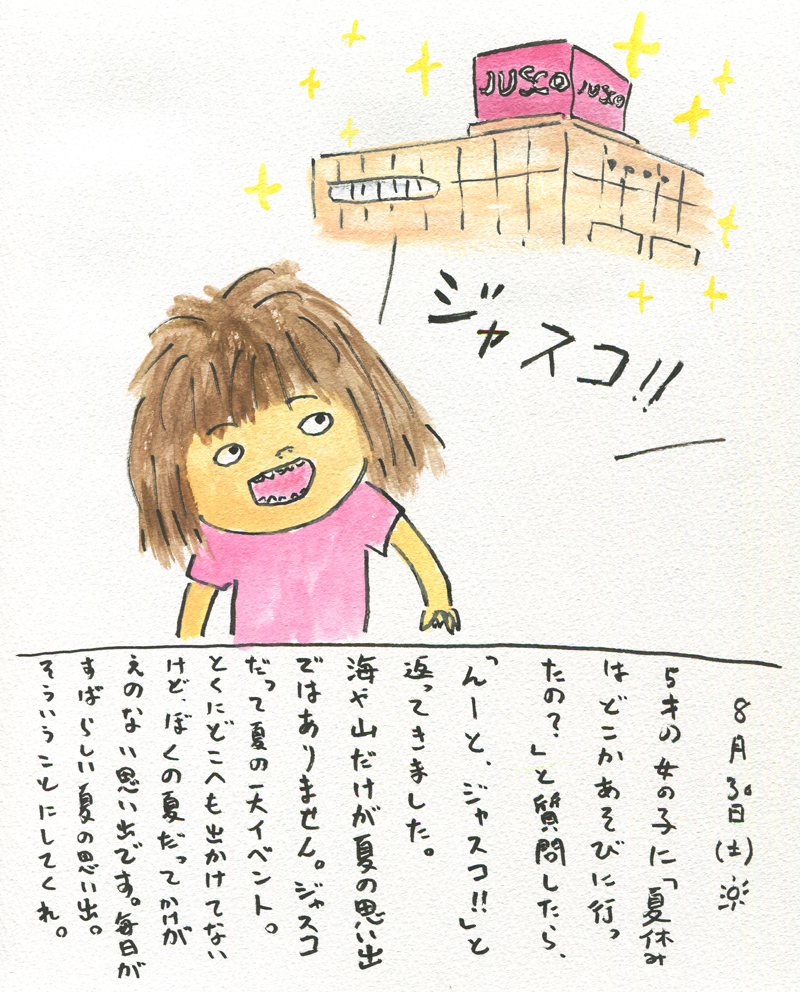 JUSCO
JUSCO
ジャスコ!!
8月30日(土)
5才の女の子に「夏休み
はどこかあそびに行っ
たの?」と質問したら、
「んーと、ジャスコ!!」と
返ってきました。
海や山だけが夏の思い出
ではありません。ジャスコ
だって夏の一大イベント。
とくにどこへも出かけてない
けど、ぼくの夏だってかけが
えのない思い出です。毎日が
すばらしい夏の思い出。
そういうことにしてくれ。